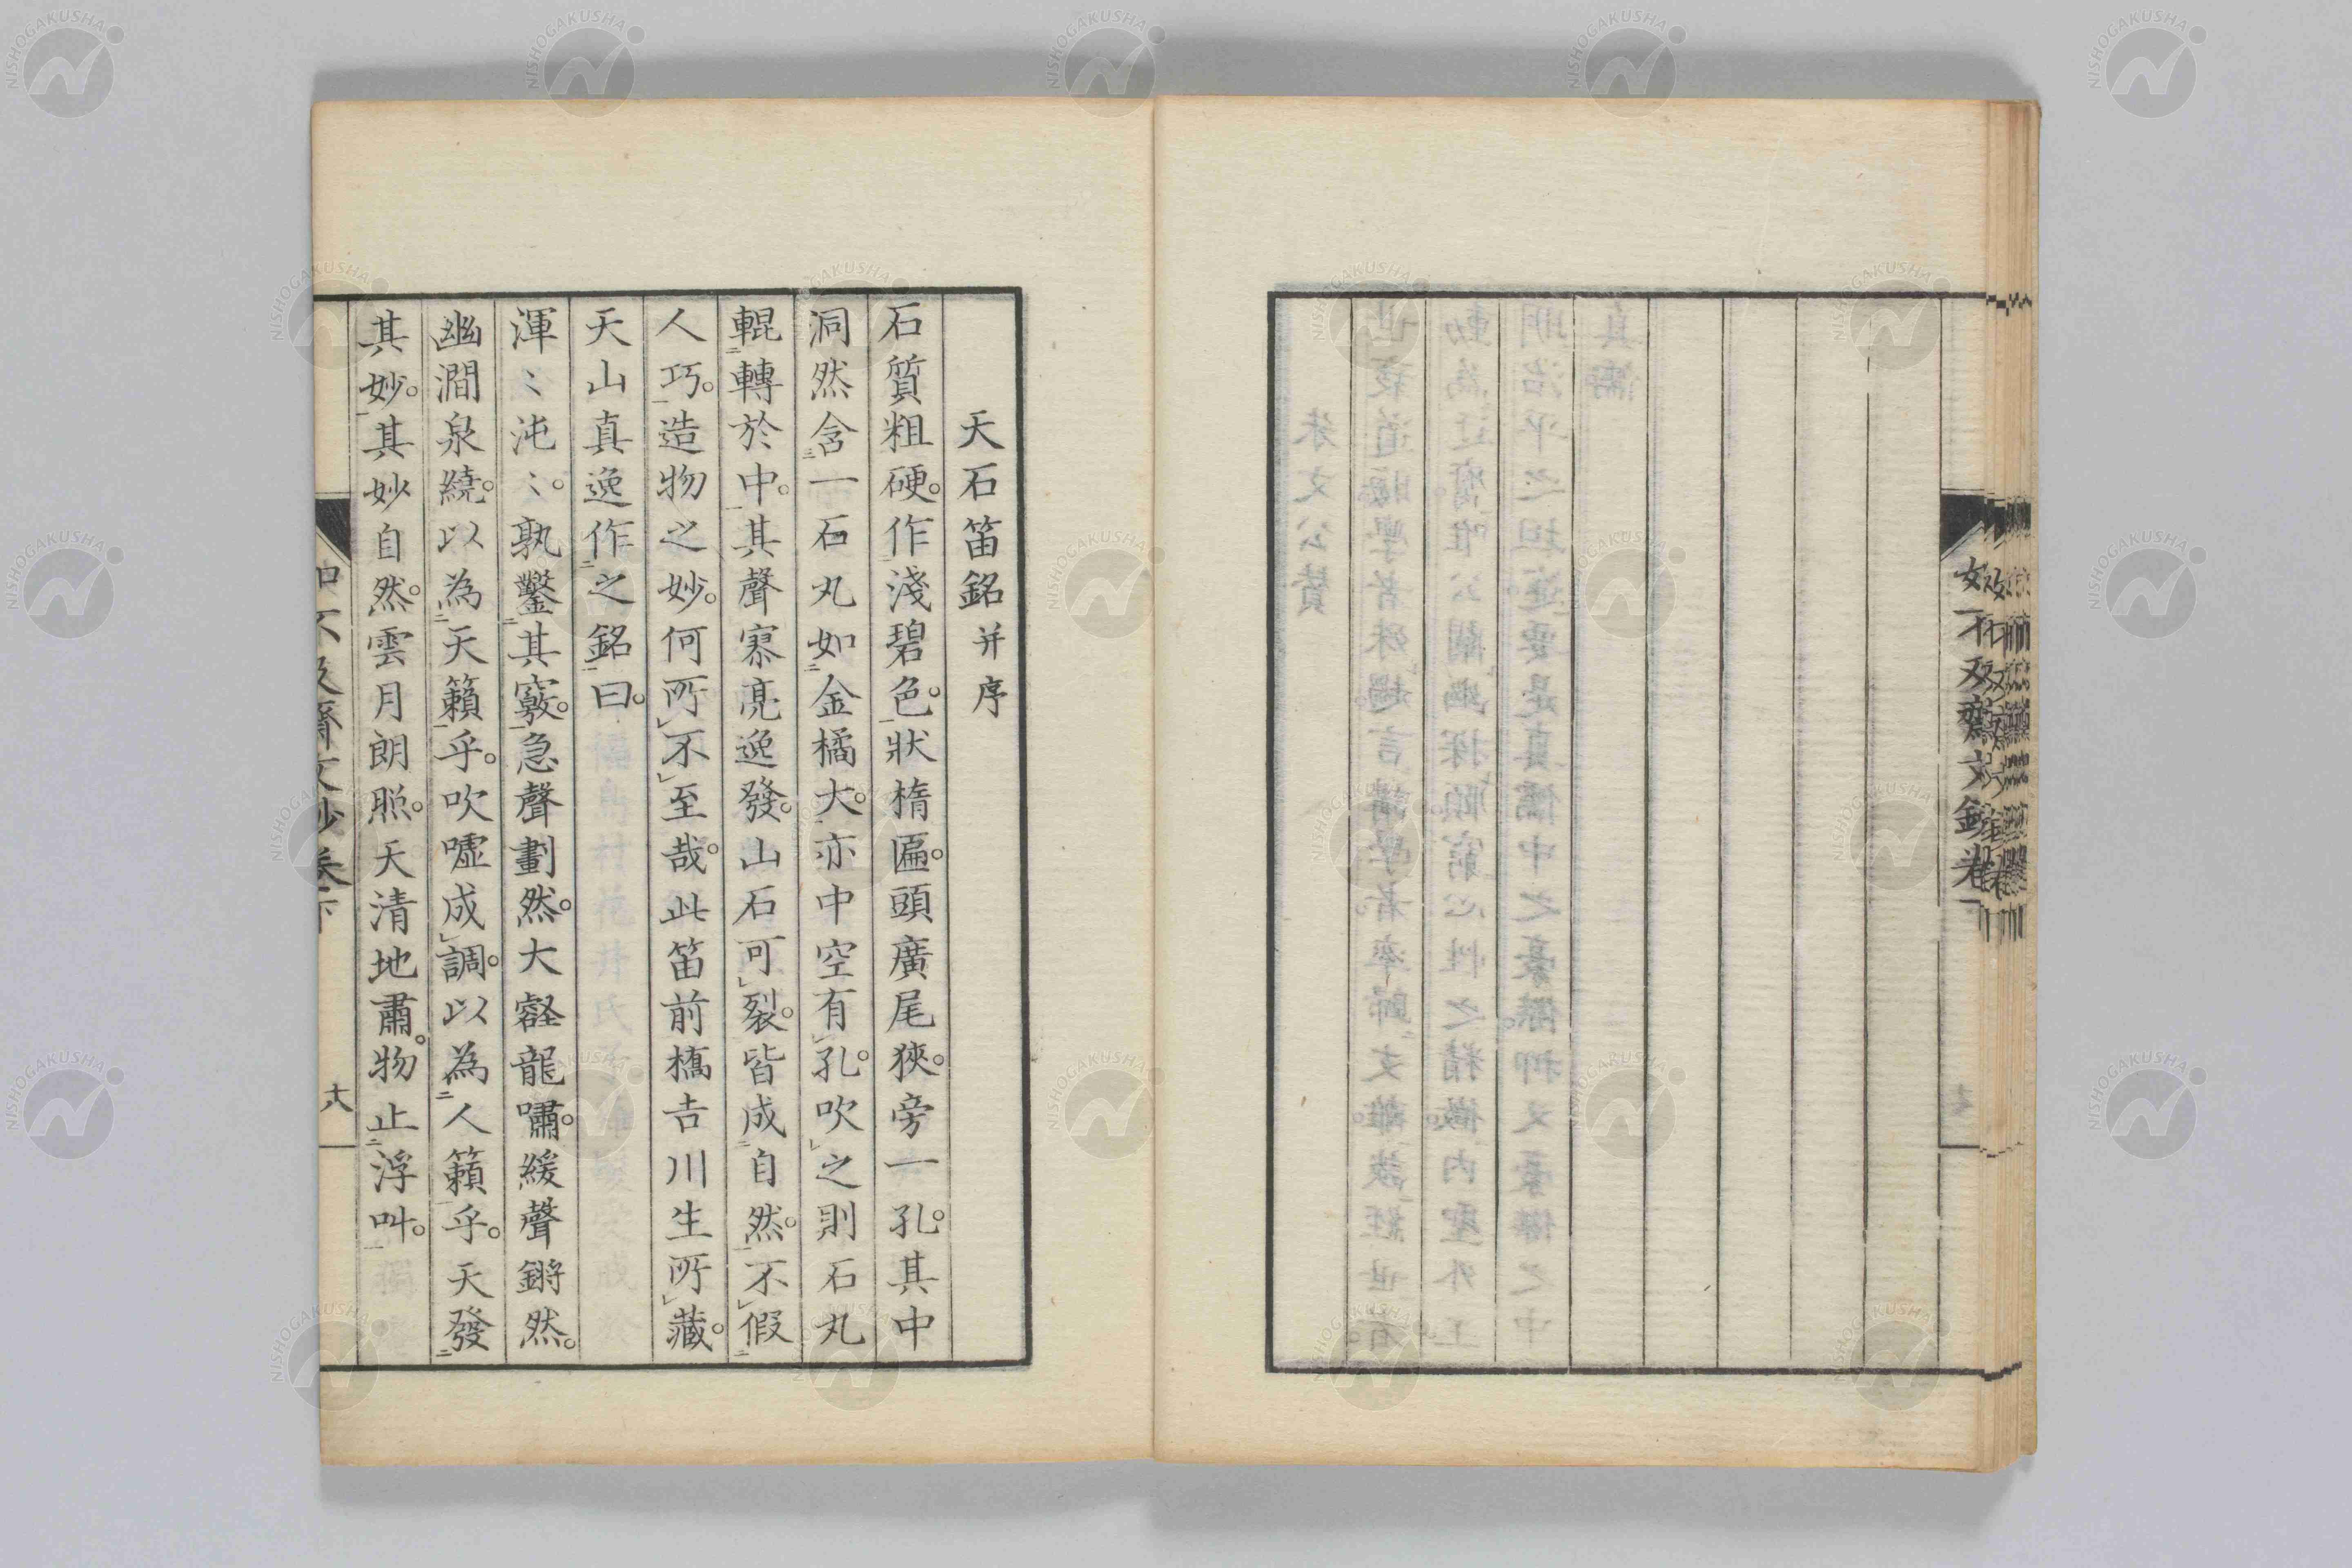 如不及齋文鈔卷下
天石笛銘 并序
石質粗硬。作淺碧色。狀楕匾。頭廣尾狹。旁一孔。其中
洞然含一石丸如金橘大。亦中空有孔。吹之則石丸
輥轉於中。其聲寥亮逸發。山石可裂。皆成自然。不假
人巧。造物之妙。何所不至哉。此笛前橋吉川生所藏。
天山真逸作之銘曰。
渾〻沌〻。孰鑿其竅。急聲劃然。大壑龍嘯。緩聲鏘然。
幽澗泉繞。以為天籟乎。吹嘘成調。以為人籟乎。天發
其妙。其妙自然。雲月朗照。天清地肅。物止浮叫。
如不及齋文鈔卷下
十八
NISHOGAKUSHA